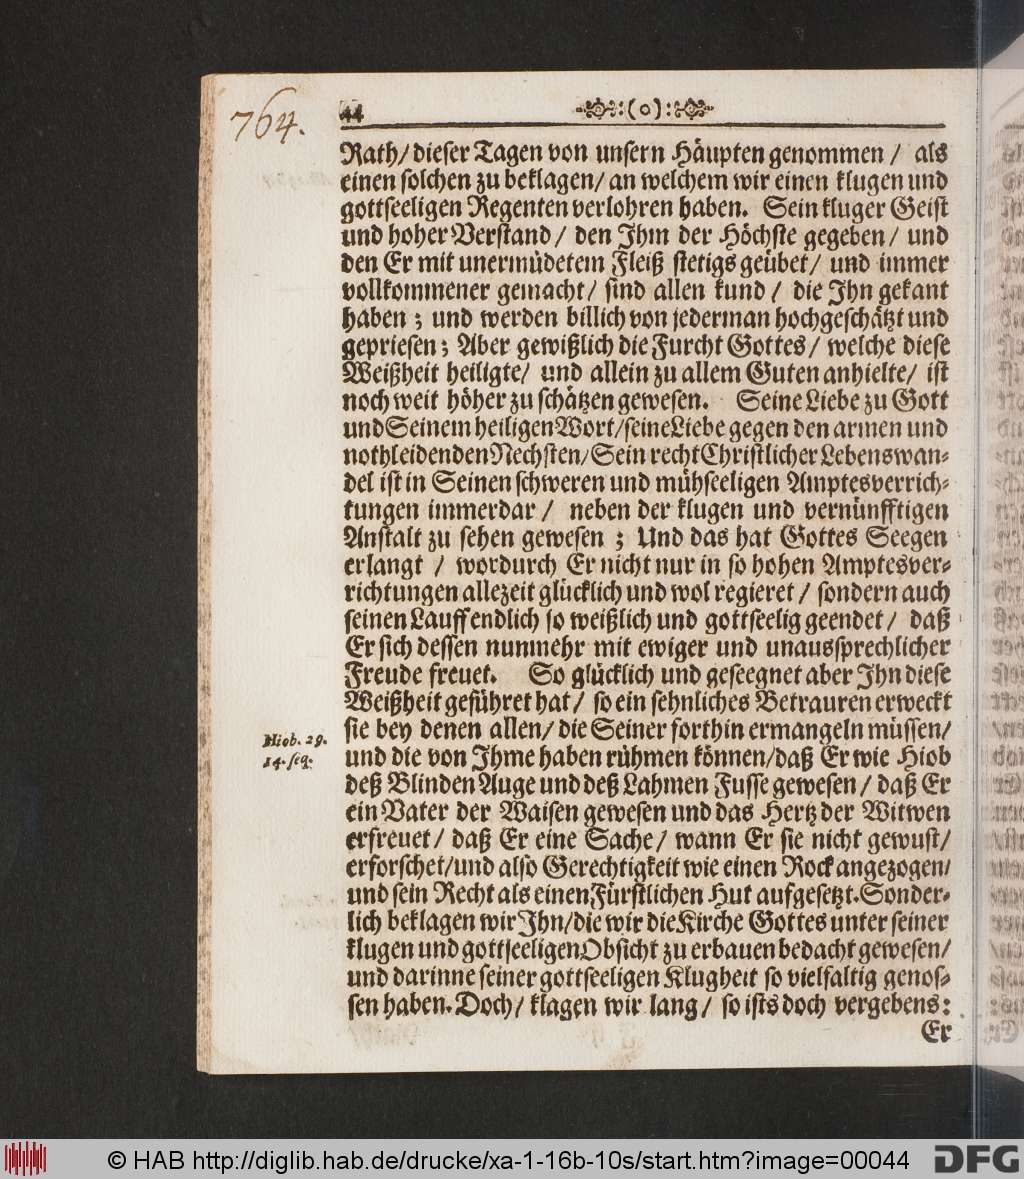 764.
44 :(o):
Rath/ dieser Tagen von unsern Häupten genommen/ als
einen solchen zu beklagen/ an welchem wir einen klugen und
gottseeligen Regenten verlohren haben. Sein kluger Geist
und hoher Verstand/ den Ihm der Höchste gegeben/ und
den Er mit unermüdetem Fleiß stetigs geübet/ und immer
vollkommener gemacht/ sind allen kund/ die Ihn gekant
haben; und werden billich von jederman hochgeschätzt und
gepriesen; Aber gewißlich die Furcht Gottes/ welche diese
Weißheit heiligte/ und allein zu allem Guten anhielte/ ist
noch weit höher zu schätzen gewesen. Seine Liebe zu Gott
und Seinem heiligen Wort/ seine Liebe gegen den armen und
nothleidenden Nechsten/ Sein recht Christlicher Lebenswan-
del ist in Seinen schweren und mühseeligen Amptesverrich-
tungen immerdar/ neben der klugen und vernünfftigen
Anstalt zu sehen gewesen; Und das hat Gottes Seegen
erlangt/ wordurch Er nicht nur in so hohen Amptesver-
richtungen allezeit glücklich und wol regieret/ sondern auch
seinen Lauff endlich so weißlich und gottseelig geendet/ daß
Er sich dessen nunmehr mit ewiger und unaussprechlicher
Freude freuet. So glücklich und geseegnet aber Ihn diese
Weißheit geführet hat/ so ein sehnliches Betrauren erweckt
sie bey denen allen/ die Seiner forthin ermangeln müssen/
Hiob. 29.
14. seq.
und die von Ihme haben rühmen können/ daß Er wie Hiob
deß Blinden Auge und deß Lahmen Fusse gewesen/ daß Er
ein Vater der Waisen gewesen und das Hertz der Witwen
erfreuet/ daß Er eine Sache/ wann Er sie nicht gewust/
erforschet/ und also Gerechtigkeit wie einen Rock angezogen/
und sein Recht als einen Fürstlichen Hut aufgesetzt. Sonder-
lich beklagen wir Ihn/ die wir die Kirche Gottes unter seiner
klugen und gottseeligen Obsicht zu erbauen bedacht gewesen/
und darinne seiner gottseeligen Klugheit so vielfaltig genos-
sen haben. Doch/ klagen wir lang/ so ists doch vergebens:
Er
© HAB http://diglib.hab.de/drucke/xa-1-16b-10s/start.htm?image=00044
DFG